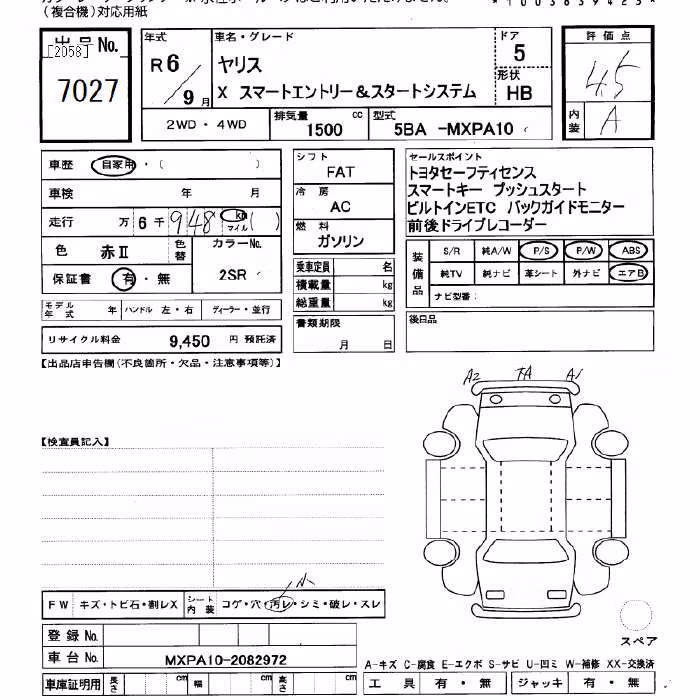 (複合機)対応用紙
*1003639423*
出品No.
[2058]
7027
年式
R6
9月
車名・グレード
ヤリス
X スマートエントリー&スタートシステム
ドア
5
形状
HB
評価点
4.5
内装
A
2WD・4WD
排気量
1500 cc
型式
5BA -MXPA10
車歴 自家用・( )
車検 年 月
走行 万 6 千 948 km マイル ( )
色 赤Ⅱ
色替
カラーNo.
2SR
保証書 有・無
モデル年式 年 ハンドル 左・右 ディーラー・並行
リサイクル料金 9,450 円 預託済
シフト
FAT
冷房
AC
燃料
ガソリン
乗車定員 名
積載量 kg
総重量 kg
書類期限
月 日
セールスポイント
トヨタセーフティセンス
スマートキー プッシュスタート
ビルトインETC バックガイドモニター
前後ドライブレコーダー
装備品
S/R 純A/W P/S P/W ABS
純TV 純ナビ 革シート 外ナビ エアB
ナビ型番:
後日品
【出品店申告欄(不良箇所・欠品・注意事項等)】
A2 A1
【検査員記入】
FW キズ・トビ石・割レX シート内装 コゲ・穴・汚レ・シミ・破レ・スレ
小
登録No.
車台No. MXPA10-2082972
車庫証明用 長さ cm 幅 cm 高さ cm
スペア
A-キズ C-腐食 E-エクボ S-サビ U-凹ミ W-補修 XX-交換済
工具 有・無 ジャッキ 有・無